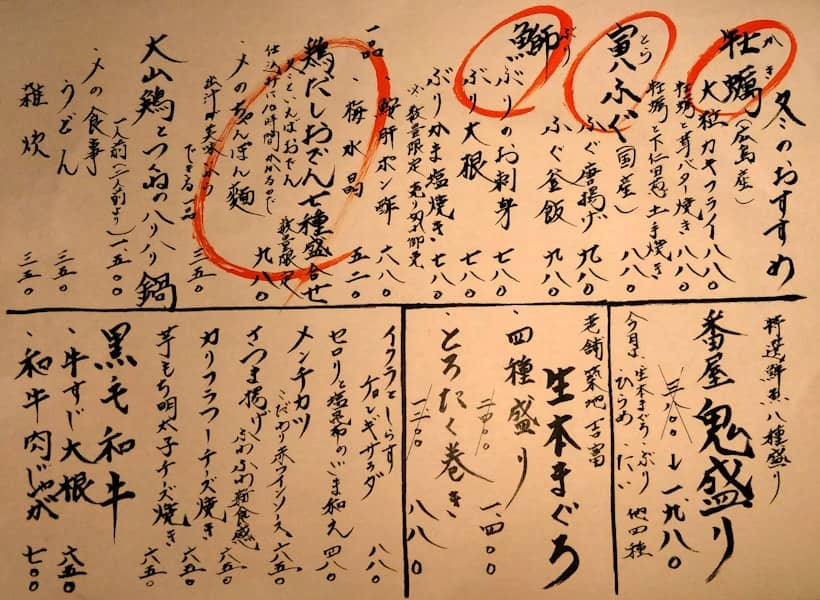 冬のおすすめ
かき
牡蠣(広島産)
大粒カキフライ 八八〇
牡蠣と芽バター焼き 八八〇
牡蠣と下仁田葱 土手焼き 八八〇
とら
寅ふぐ(国産)
ふぐ唐揚げ 九八〇
ふぐ釜飯 九八〇
ぶり
鰤
ぶりのお刺身 七八〇
ぶり大根 七八〇
ぶりかま塩焼き 七八〇
※数量限定 売り切れ御免
一品
、鮟肝ポン酢 六八〇
、梅水晶 五二〇
鶏だしおでん七種盛合せ
冬といえばおでん
仕込みに10時間かかるので 数量限定 九八〇
、〆のちゃんぽん麺 三五〇
出汁が美味いからできる一品
大山鶏とつくねのハリハリ鍋
一人前(二人前より) 一、五〇〇
、〆の食事
うどん 三五〇
雑炊 三五〇
特選鮮魚八種盛り
番屋鬼盛り
三八〇〇→一、九八〇
今月は、生本まぐろ、ぶり
ひらめ、たい 他四種
老舗築地吉富
生本まぐろ
、四種盛り 二四〇〇 一、四〇〇
、とろたく巻き 一二〇〇 八八〇
イクラとしらす
ケロッギサラダ 八八〇
セロリと塩昆布のごま和え 四八〇
メンチカツ
こだわり赤ワインソース 六五〇
さつま揚げ
ふわふわ新食感 六五〇
カリフラワーチーズ焼き 六五〇
芋もち明太子チーズ焼き 六五〇
黒毛和牛
、牛すじ大根 六五〇
、和牛肉じゃが 七〇〇